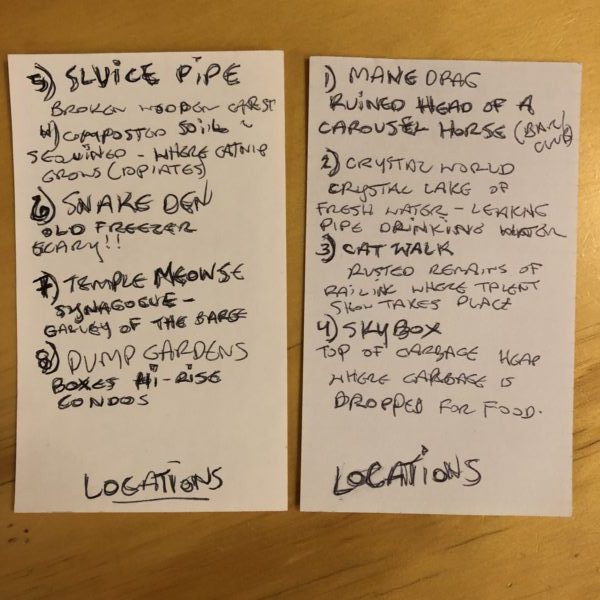 5) SLUICE PIPE
BROKEN WOODEN CARST
W) COMPOSTED SOIL &
SEQUINED - WHERE CATNIP
GROWS (OPIATES)
6) SNAKE DEN
OLD FREEZER
SCARY!!
7) TEMPLE MEOWSE
SYNAGOGUE -
GALLEY OF THE BARGE
8) DUMP GARDENS
BOXES HI-RISE
CONDOS
LOCATIONS
1) MANE DRAG
RUINED HEAD OF A
CAROUSEL HORSE (BAR/
CLUB)
2) CRYSTAL WORLD
CRYSTAL LAKE OF
FRESH WATER - LEAKNG
PIPE DRINKING WATER
3) CAT WALK
RUSTED REMAINS OF
RAILING WHERE TALENT
SHOW TAKES PLACE
4) SKYBOX
TOP OF GARBAGE HEAP
WHERE GARBAGE IS
DROPPED FOR FOOD.
LOCATIONS